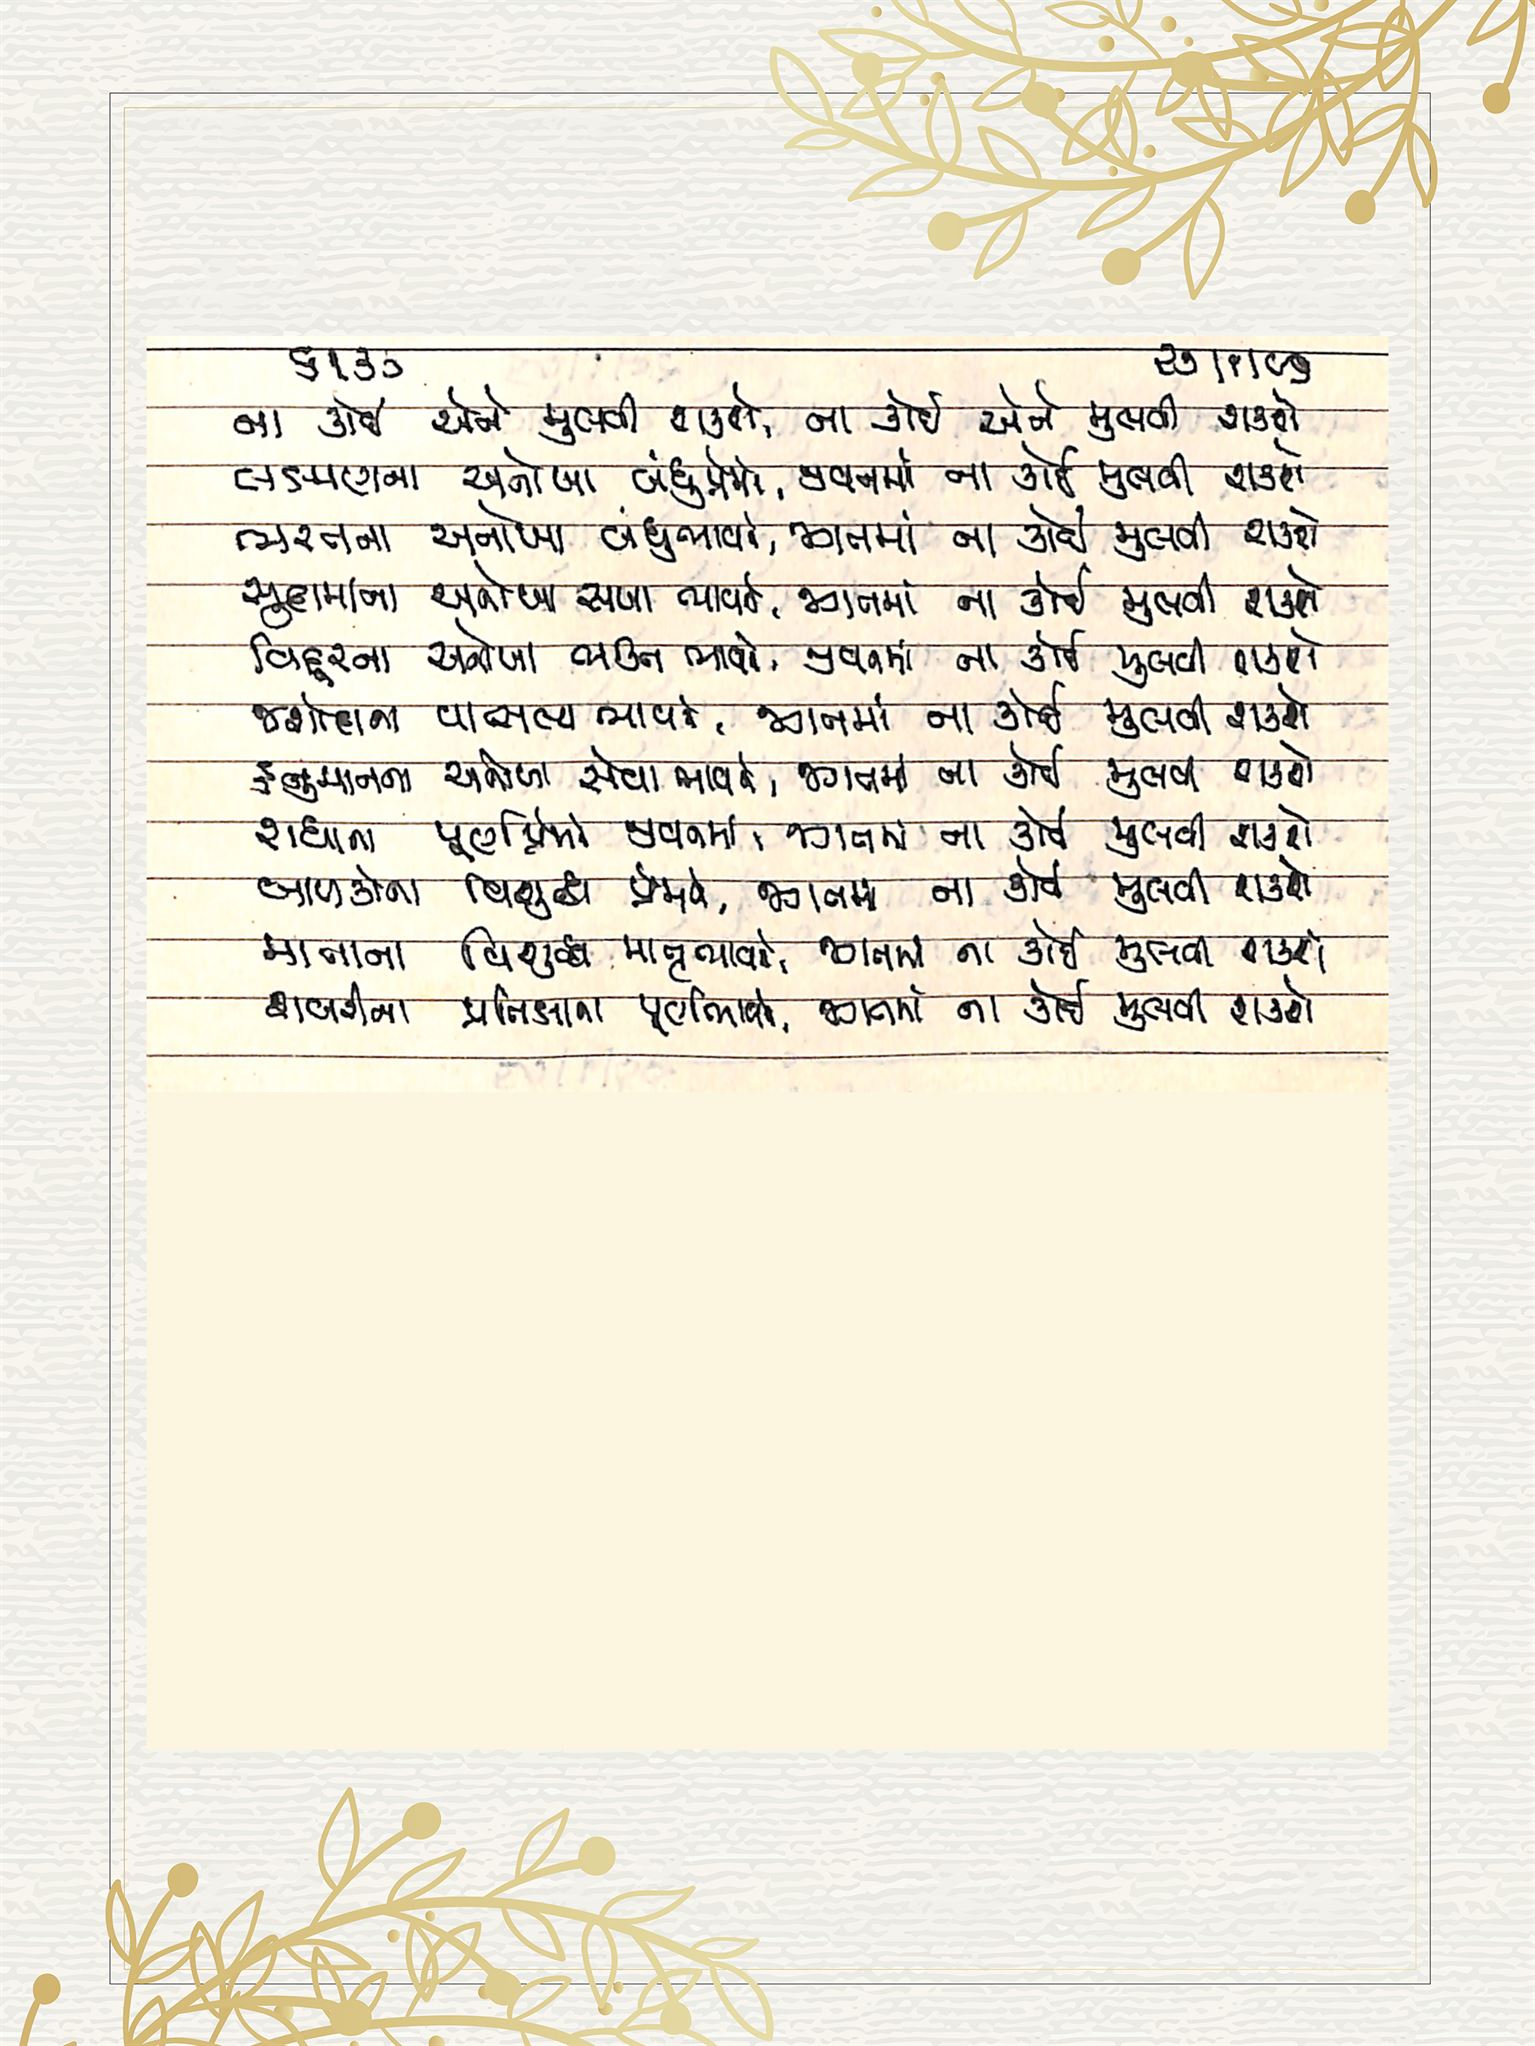 ૬૧૩૦ ૨૭/૧/૮૭
ના કોઈ એને ભુલવી શકશે, ના કોઈ એને ભુલવી શકશે
લક્ષ્મણના અનોખા બંધુપ્રેમને, જીવનમાં ના કોઈ ભુલવી શકશે
ભરતના અનોખા બંધુભાવને, જગતમાં ના કોઈ ભુલવી શકશે
સુદામાના અનોખા સખા ભાવને, જગતમાં ના કોઈ ભુલવી શકશે
વિદુરના અનોખા ભક્તિ ભાવને, જીવનમાં ના કોઈ ભુલવી શકશે
જશોદાના વાત્સલ્ય ભાવને, જગતમાં ના કોઈ ભુલવી શકશે
હનુમાનના અનોખા સેવા ભાવને, જગતમાં ના કોઈ ભુલવી શકશે
રાધાના પૂર્ણપ્રેમને જીવનમાં, જગતમાં ના કોઈ ભુલવી શકશે
બાળકોના વિશુદ્ધ પ્રેમને, જગતમાં ના કોઈ ભુલવી શકશે
માતાના વિશુદ્ધ માતૃભાવને, જગતમાં ના કોઈ ભુલવી શકશે
શબરીના પ્રતિક્ષાના પૂર્ણભાવને, જગતમાં ના કોઈ ભુલવી શકશે